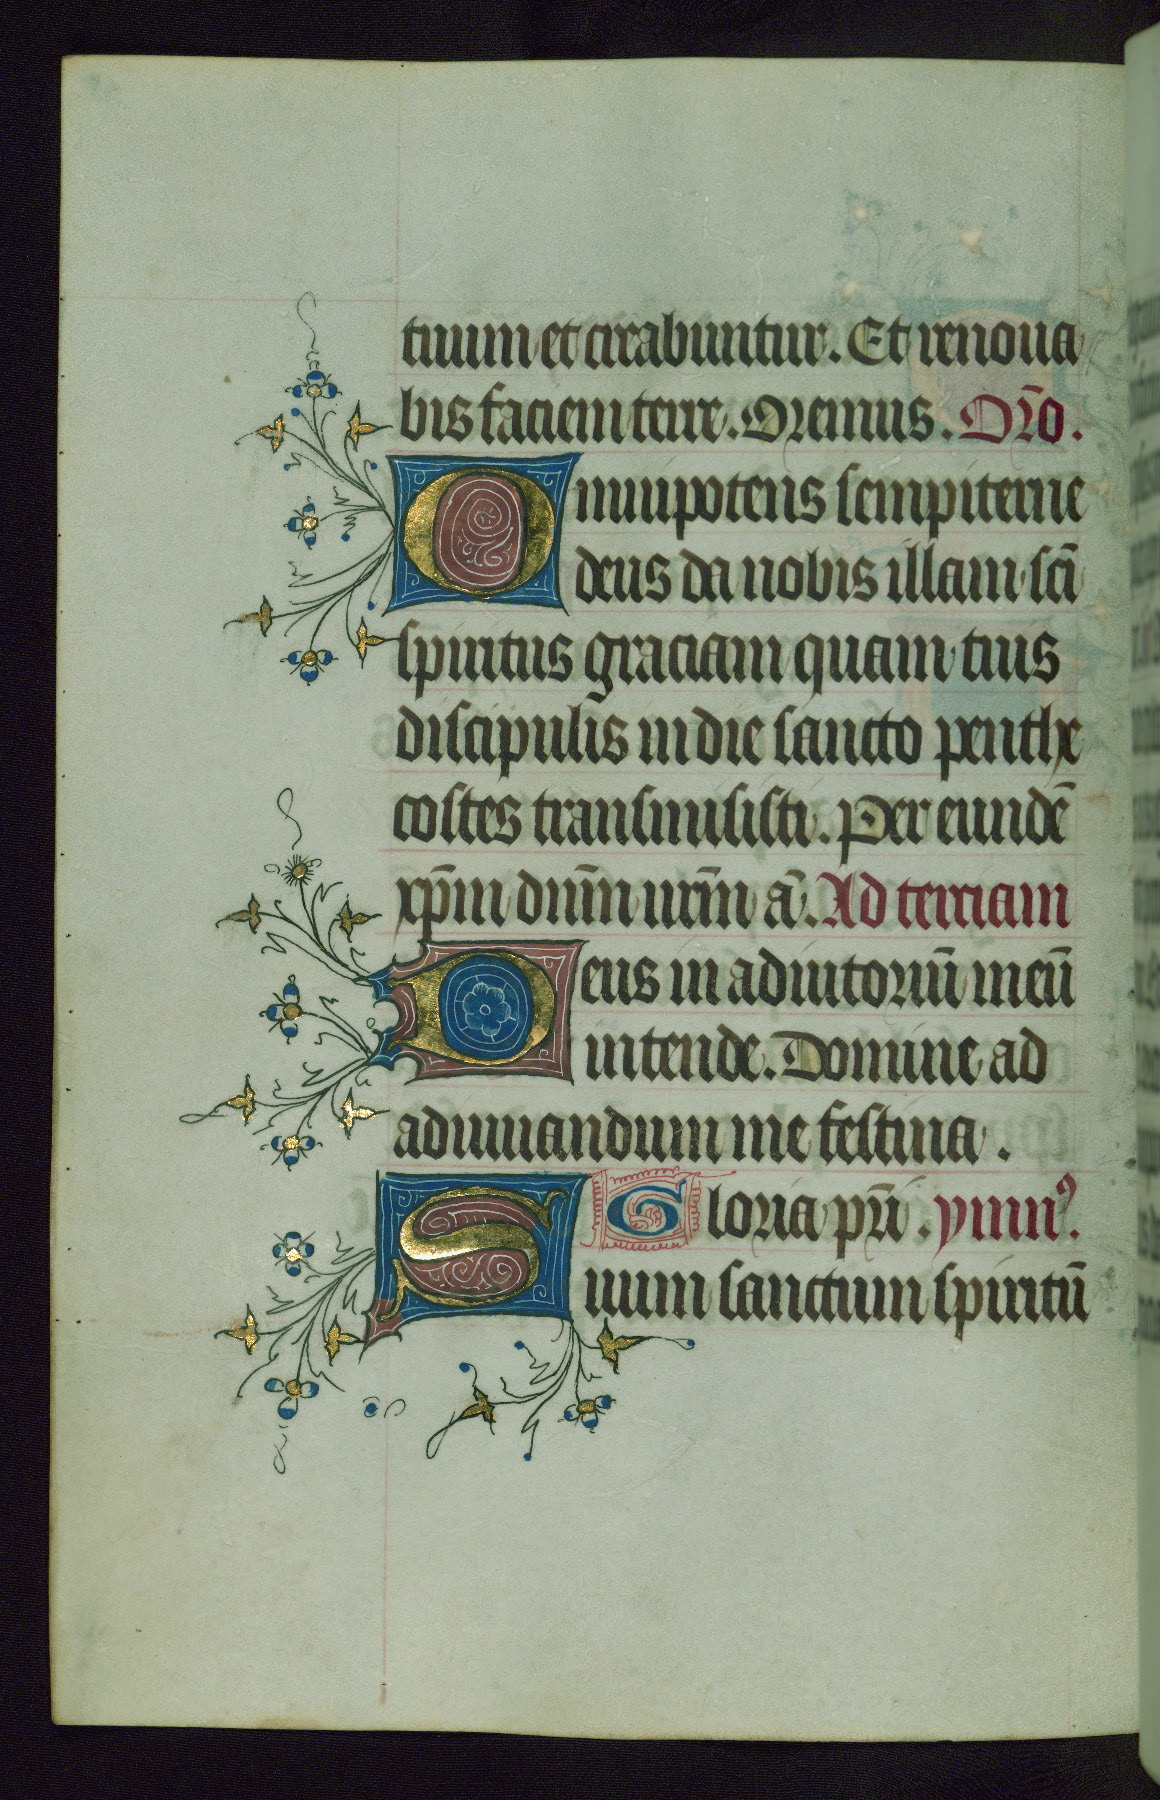 tuum et creabuntur. Et renoua
bis faciem terre. Oremus. Or̄o.
Omnipotens sempiterne
deus da nobis illam sc̄i
spiritus graciam quam tuis
discipulis in die sancto penthe
costes transmisisti. Per eundē
xp̄m dn̄m nr̄m ā. Ad terciam
Deus in adiutoriū meū
intende. Domine ad
adiuuandum me festina.
Gloria pr̄i. ymnꝰ.
Suum sanctum spiritū